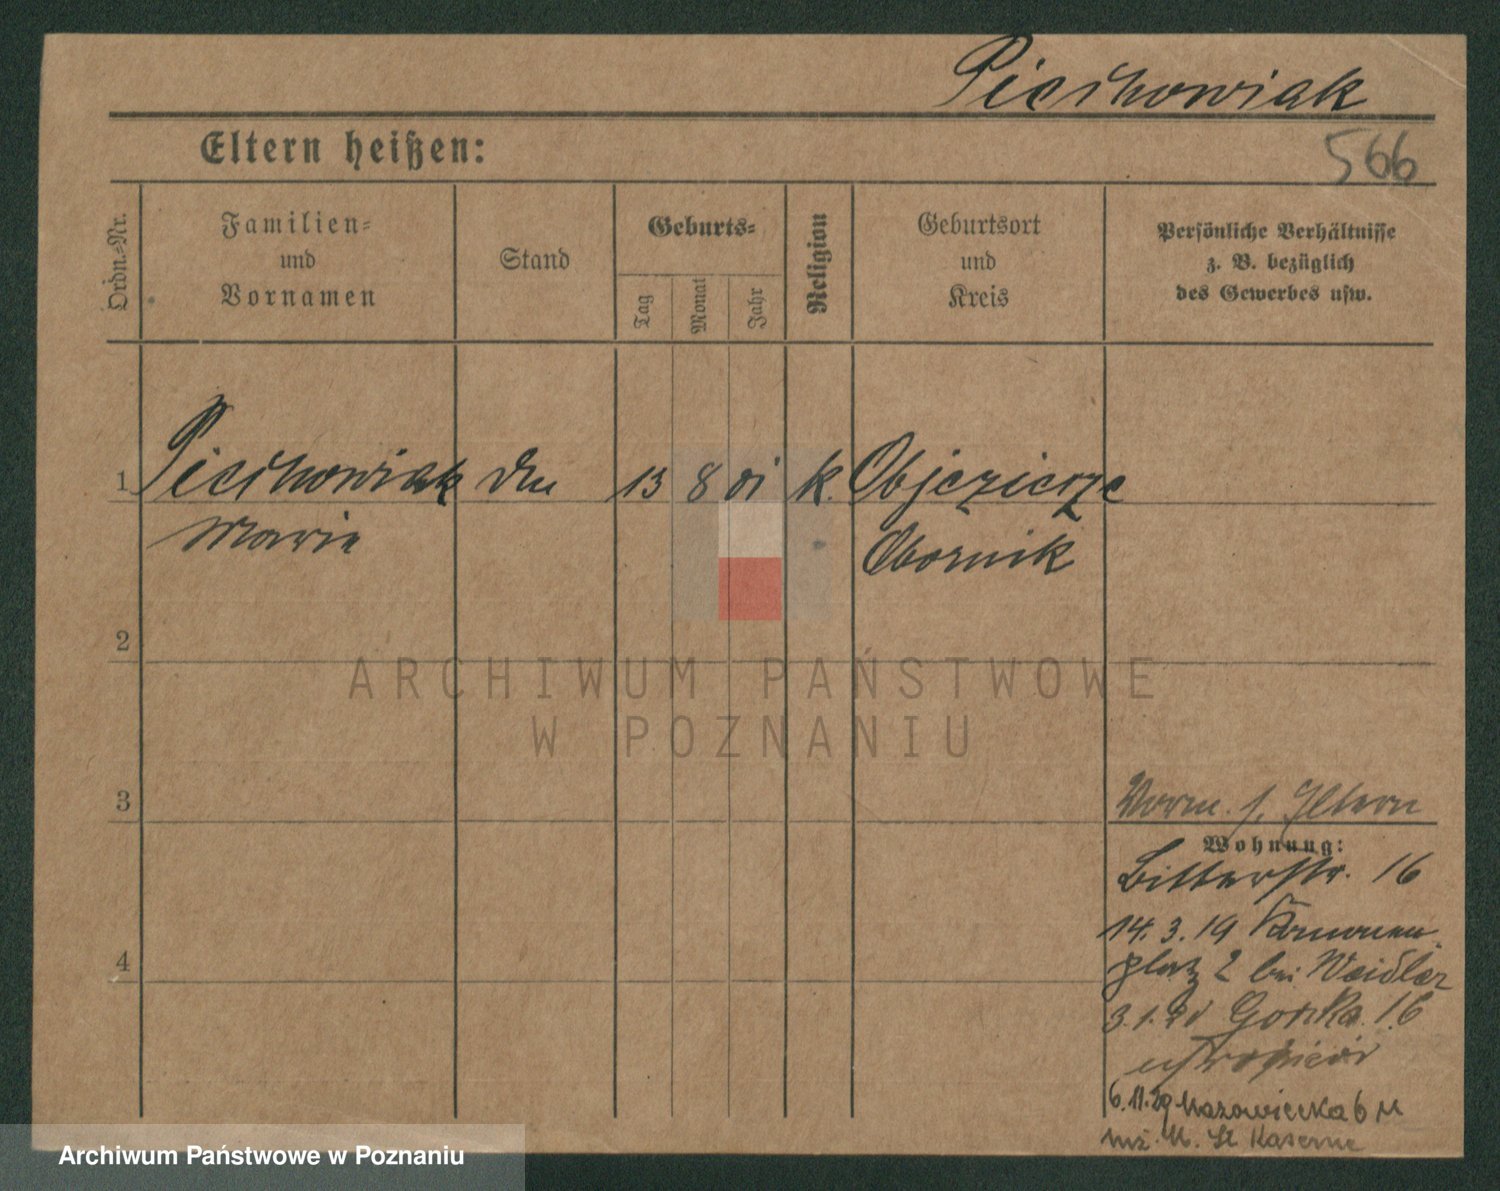 Piechowiak
Eltern heißen:
566
Ordn.=Nr.
Familien=
und
Vornamen
Stand
Geburts=
Tag
Monat
Jahr
Religion
Geburtsort
und
Kreis
Persönliche Verhältnisse
z. B. bezüglich
des Gewerbes usw.
1 Piechowiak 13 8 01 k. Objezierze
Marie Obornik
2
3
Wohnung:
Bitterstr. 16
4
14.3.19
platz 2 bei Weidler
Gorska 16
6.11.29 Mazowiecka 6
Kaserne
ARCHIWUM PAŃSTWOWE
W POZNANIU
Archiwum Państwowe w Poznaniu